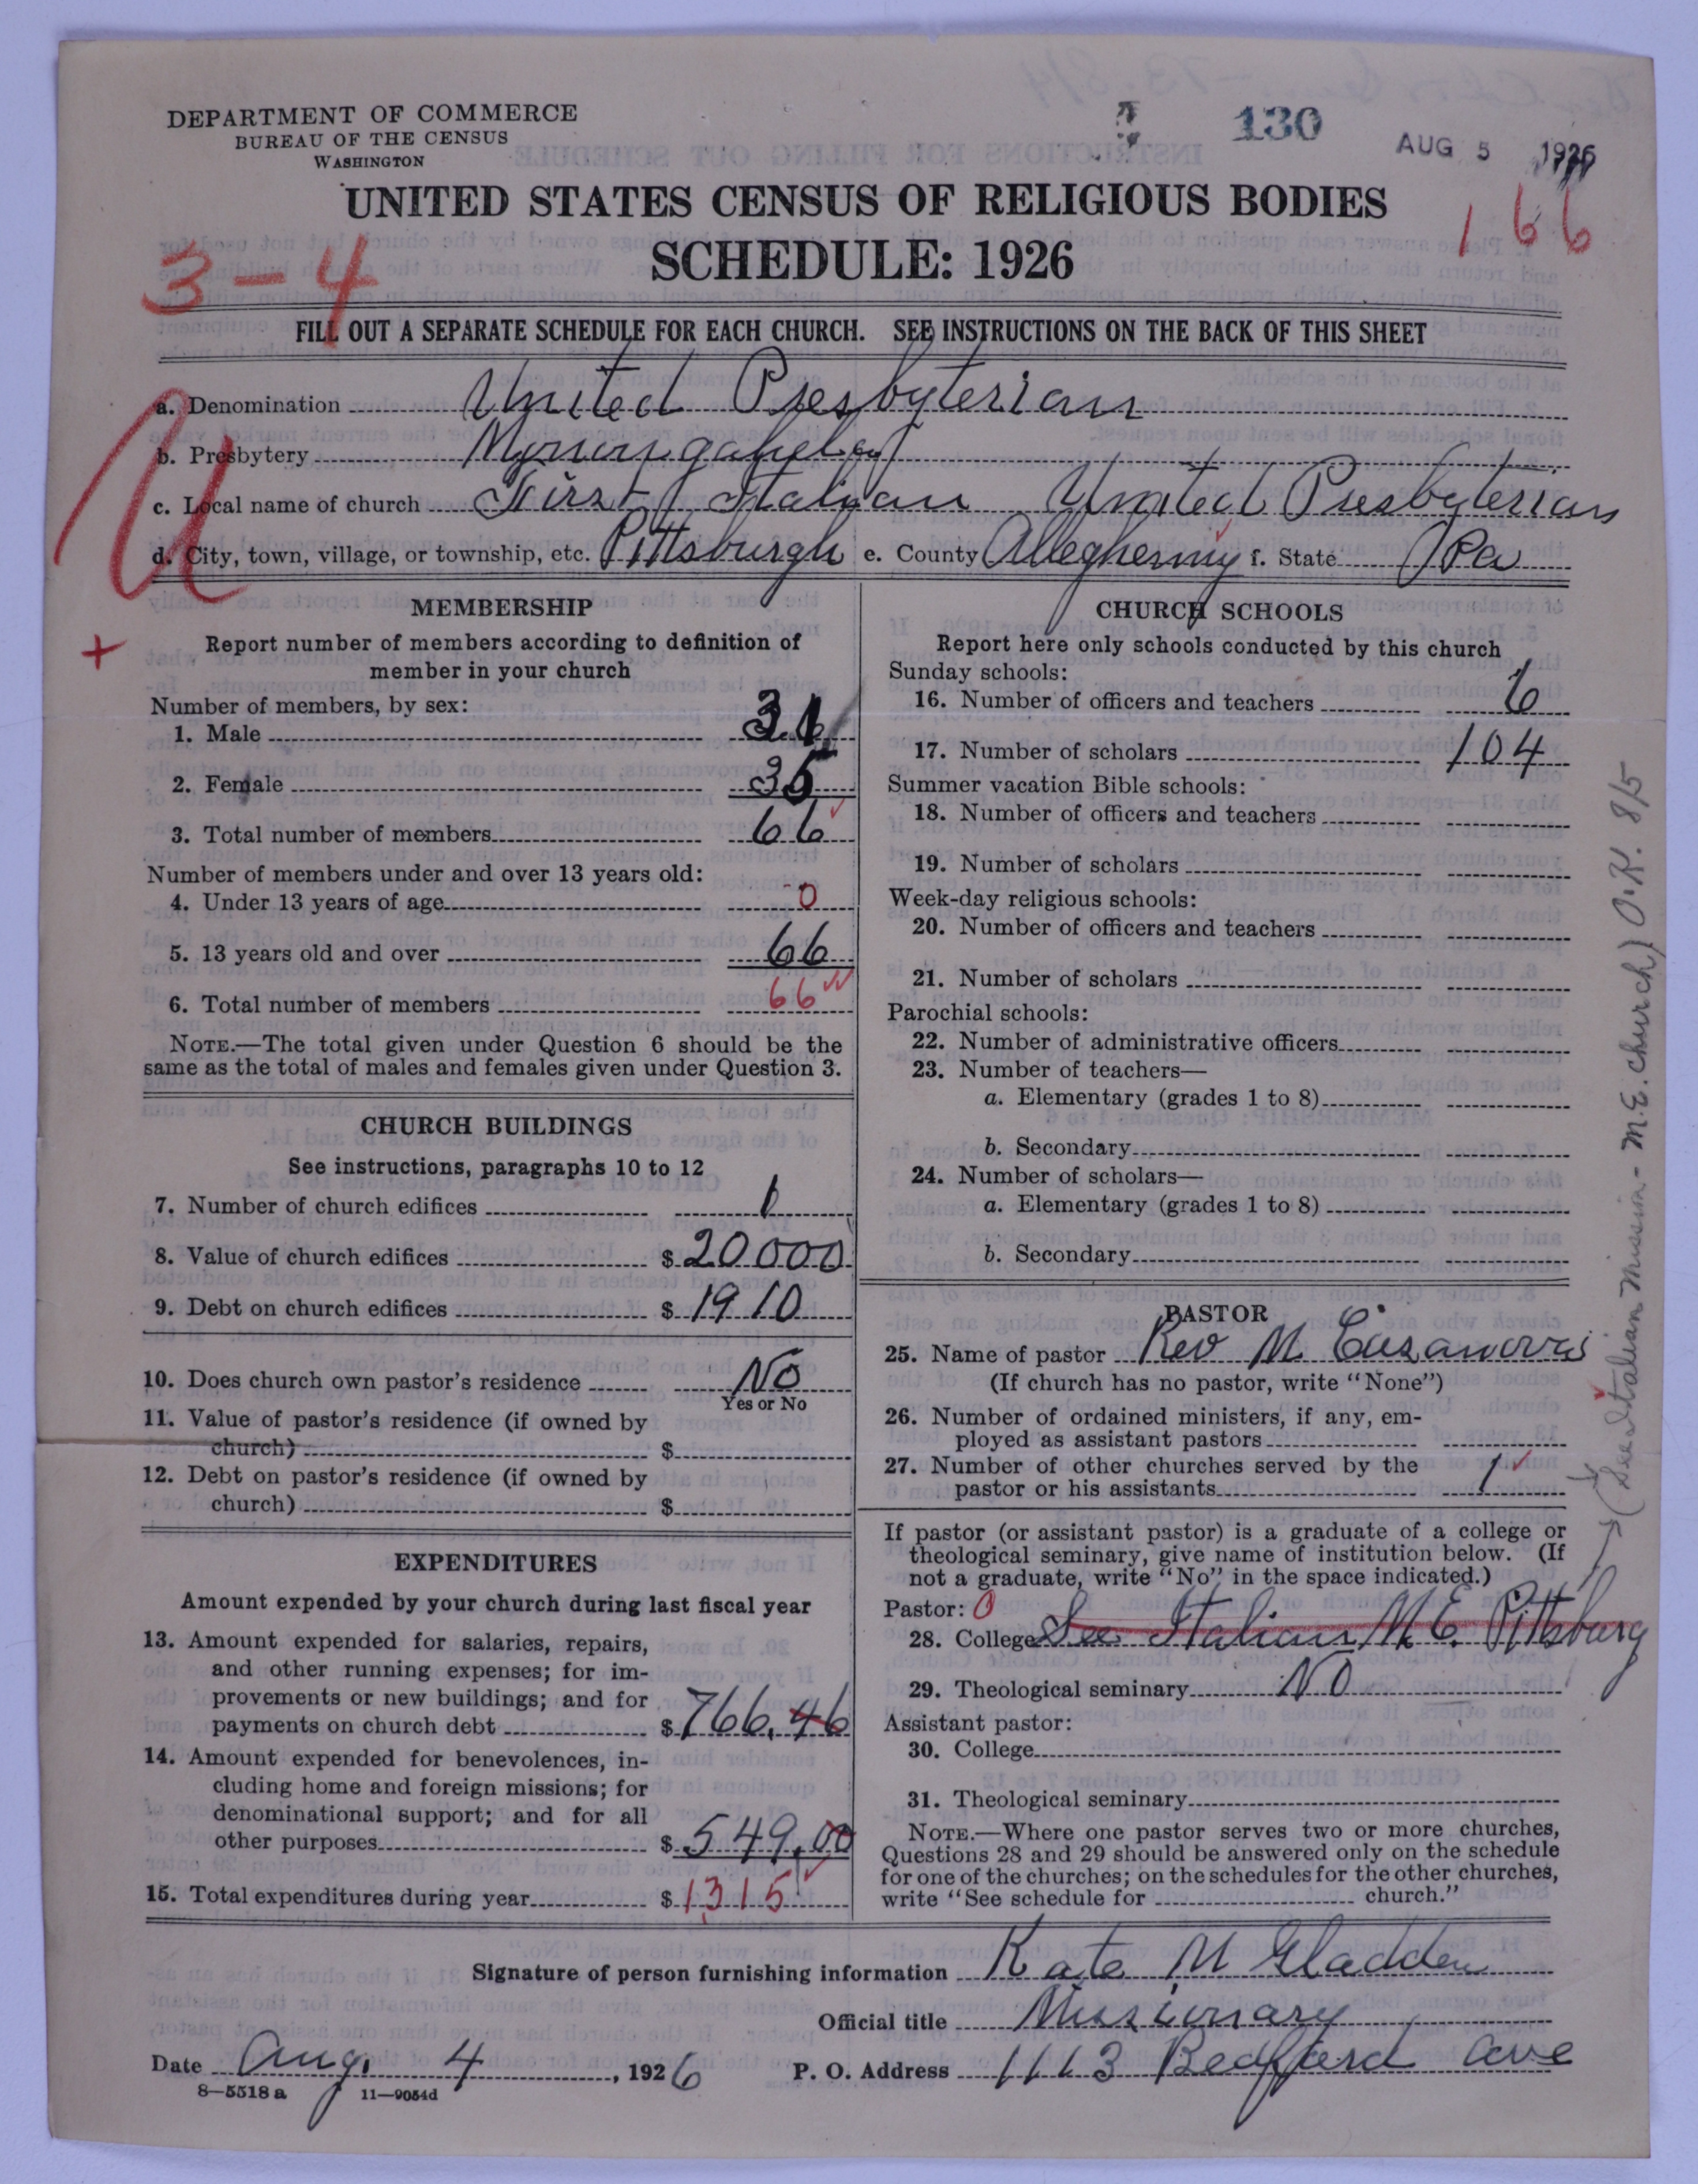 DEPARTMENT OF COMMERCE
BUREAU OF THE CENSUS
WASHINGTON
130
AUG 5 1926
UNITED STATES CENSUS OF RELIGIOUS BODIES
166
SCHEDULE: 1926
3-4
FILL OUT A SEPARATE SCHEDULE FOR EACH CHURCH. SEE INSTRUCTIONS ON THE BACK OF THIS SHEET
a. Denomination United Presbyterian
b. Presbytery Monongahela
c. Local name of church First Italian United Presbyterian
d. City, town, village, or township, etc. Pittsburgh e. County Allegheny f. State Pa
MEMBERSHIP
Report number of members according to definition of
member in your church
Number of members, by sex:
1. Male 31
2. Female 35
3. Total number of members 66
Number of members under and over 13 years old:
4. Under 13 years of age 0
5. 13 years old and over 66
6. Total number of members 66
NOTE.—The total given under Question 6 should be the
same as the total of males and females given under Question 3.
CHURCH BUILDINGS
See instructions, paragraphs 10 to 12
7. Number of church edifices 1
8. Value of church edifices $ 20000
9. Debt on church edifices $ 1910
10. Does church own pastor's residence No
Yes or No
11. Value of pastor's residence (if owned by
church) $
12. Debt on pastor's residence (if owned by
church) $
EXPENDITURES
Amount expended by your church during last fiscal year
13. Amount expended for salaries, repairs,
and other running expenses; for im-
provements or new buildings; and for
payments on church debt $ 766.46
14. Amount expended for benevolences, in-
cluding home and foreign missions; for
denominational support; and for all
other purposes $ 549.00
15. Total expenditures during year $ 1315
CHURCH SCHOOLS
Report here only schools conducted by this church
Sunday schools:
16. Number of officers and teachers 6
17. Number of scholars 104
Summer vacation Bible schools:
18. Number of officers and teachers
19. Number of scholars
Week-day religious schools:
20. Number of officers and teachers
21. Number of scholars
Parochial schools:
22. Number of administrative officers
23. Number of teachers—
a. Elementary (grades 1 to 8)
b. Secondary
24. Number of scholars—
a. Elementary (grades 1 to 8)
b. Secondary
PASTOR
25. Name of pastor Rev M Casanova
(If church has no pastor, write "None")
26. Number of ordained ministers, if any, em-
ployed as assistant pastors
27. Number of other churches served by the
pastor or his assistants 1
If pastor (or assistant pastor) is a graduate of a college or
theological seminary, give name of institution below. (If
not a graduate, write "No" in the space indicated.)
Pastor: 0
28. College See Italian M.E. Pittsburg
29. Theological seminary NO
Assistant pastor:
30. College
31. Theological seminary
NOTE.—Where one pastor serves two or more churches,
Questions 28 and 29 should be answered only on the schedule
for one of the churches; on the schedules for the other churches,
write "See schedule for church."
(See Italian Mission - M.E. church) O.K. 8/5
Signature of person furnishing information Kate M Gladden
Official title Missionary
Date Aug. 4, 1926 P. O. Address 1113 Bedford Ave
8—5518 a 11—9054d